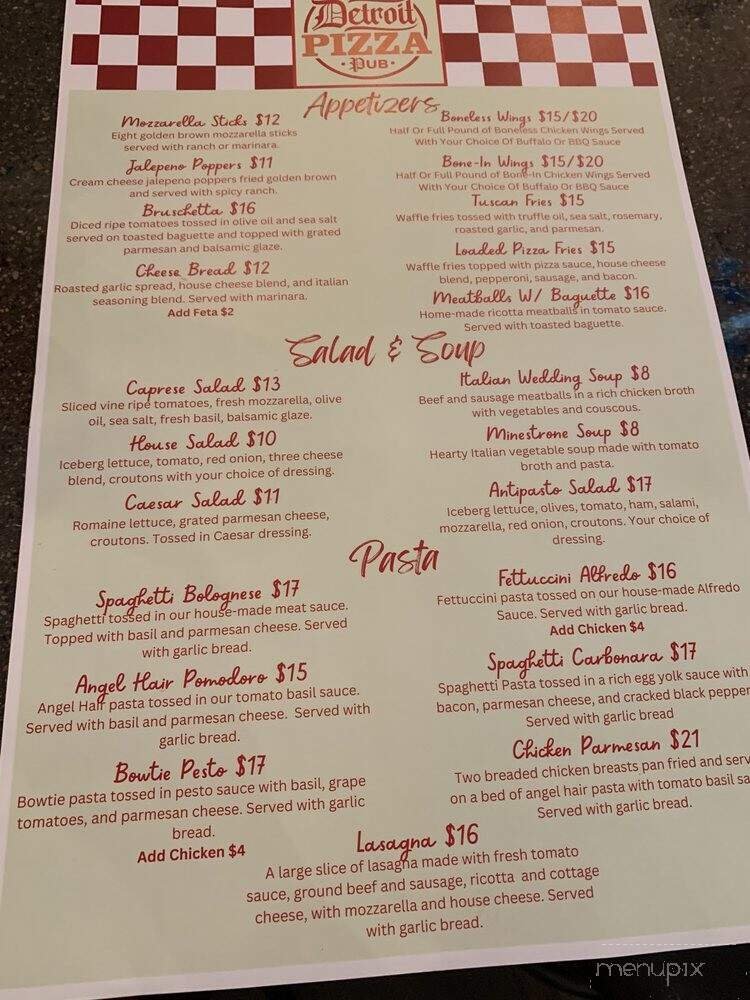 Detroit
PIZZA
PUB
Appetizers
Mozzarella Sticks $12
Eight golden brown mozzarella sticks
served with ranch or marinara.
Jalepeno Poppers $11
Cream cheese jalepeno poppers fried golden brown
and served with spicy ranch.
Bruschetta $16
Diced ripe tomatoes tossed in olive oil and sea salt
served on toasted baguette and topped with grated
parmesan and balsamic glaze.
Cheese Bread $12
Roasted garlic spread, house cheese blend, and italian
seasoning blend. Served with marinara.
Add Feta $2
Boneless Wings $15/$20
Half Or Full Pound of Boneless Chicken Wings Served
With Your Choice Of Buffalo Or BBQ Sauce
Bone-In Wings $15/$20
Half Or Full Pound of Bone-In Chicken Wings Served
With Your Choice Of Buffalo Or BBQ Sauce
Tuscan Fries $15
Waffle fries tossed with truffle oil, sea salt, rosemary,
roasted garlic, and parmesan.
Loaded Pizza Fries $15
Waffle fries topped with pizza sauce, house cheese
blend, pepperoni, sausage, and bacon.
Meatballs W/ Baguette $16
Home-made ricotta meatballs in tomato sauce.
Served with toasted baguette.
Salad & Soup
Caprese Salad $13
Sliced vine ripe tomatoes, fresh mozzarella, olive
oil, sea salt, fresh basil, balsamic glaze.
House Salad $10
Iceberg lettuce, tomato, red onion, three cheese
blend, croutons with your choice of dressing.
Caesar Salad $11
Romaine lettuce, grated parmesan cheese,
croutons. Tossed in Caesar dressing.
Italian Wedding Soup $8
Beef and sausage meatballs in a rich chicken broth
with vegetables and couscous.
Minestrone Soup $8
Hearty Italian vegetable soup made with tomato
broth and pasta.
Antipasto Salad $17
Iceberg lettuce, olives, tomato, ham, salami,
mozzarella, red onion, croutons. Your choice of
dressing.
Pasta
Spaghetti Bolognese $17
Spaghetti tossed in our house-made meat sauce.
Topped with basil and parmesan cheese. Served
with garlic bread.
Angel Hair Pomodoro $15
Angel Hair pasta tossed in our tomato basil sauce.
Served with basil and parmesan cheese. Served with
garlic bread.
Bowtie Pesto $17
Bowtie pasta tossed in pesto sauce with basil, grape
tomatoes, and parmesan cheese. Served with garlic
bread.
Add Chicken $4
Fettuccini Alfredo $16
Fettuccini pasta tossed on our house-made Alfredo
Sauce. Served with garlic bread.
Add Chicken $4
Spaghetti Carbonara $17
Spaghetti Pasta tossed in a rich egg yolk sauce with
bacon, parmesan cheese, and cracked black pepper
Served with garlic bread
Chicken Parmesan $21
Two breaded chicken breasts pan fried and serv
on a bed of angel hair pasta with tomato basil sa
Served with garlic bread.
Lasagna $16
A large slice of lasagna made with fresh tomato
sauce, ground beef and sausage, ricotta and cottage
cheese, with mozzarella and house cheese. Served
with garlic bread.
menupix